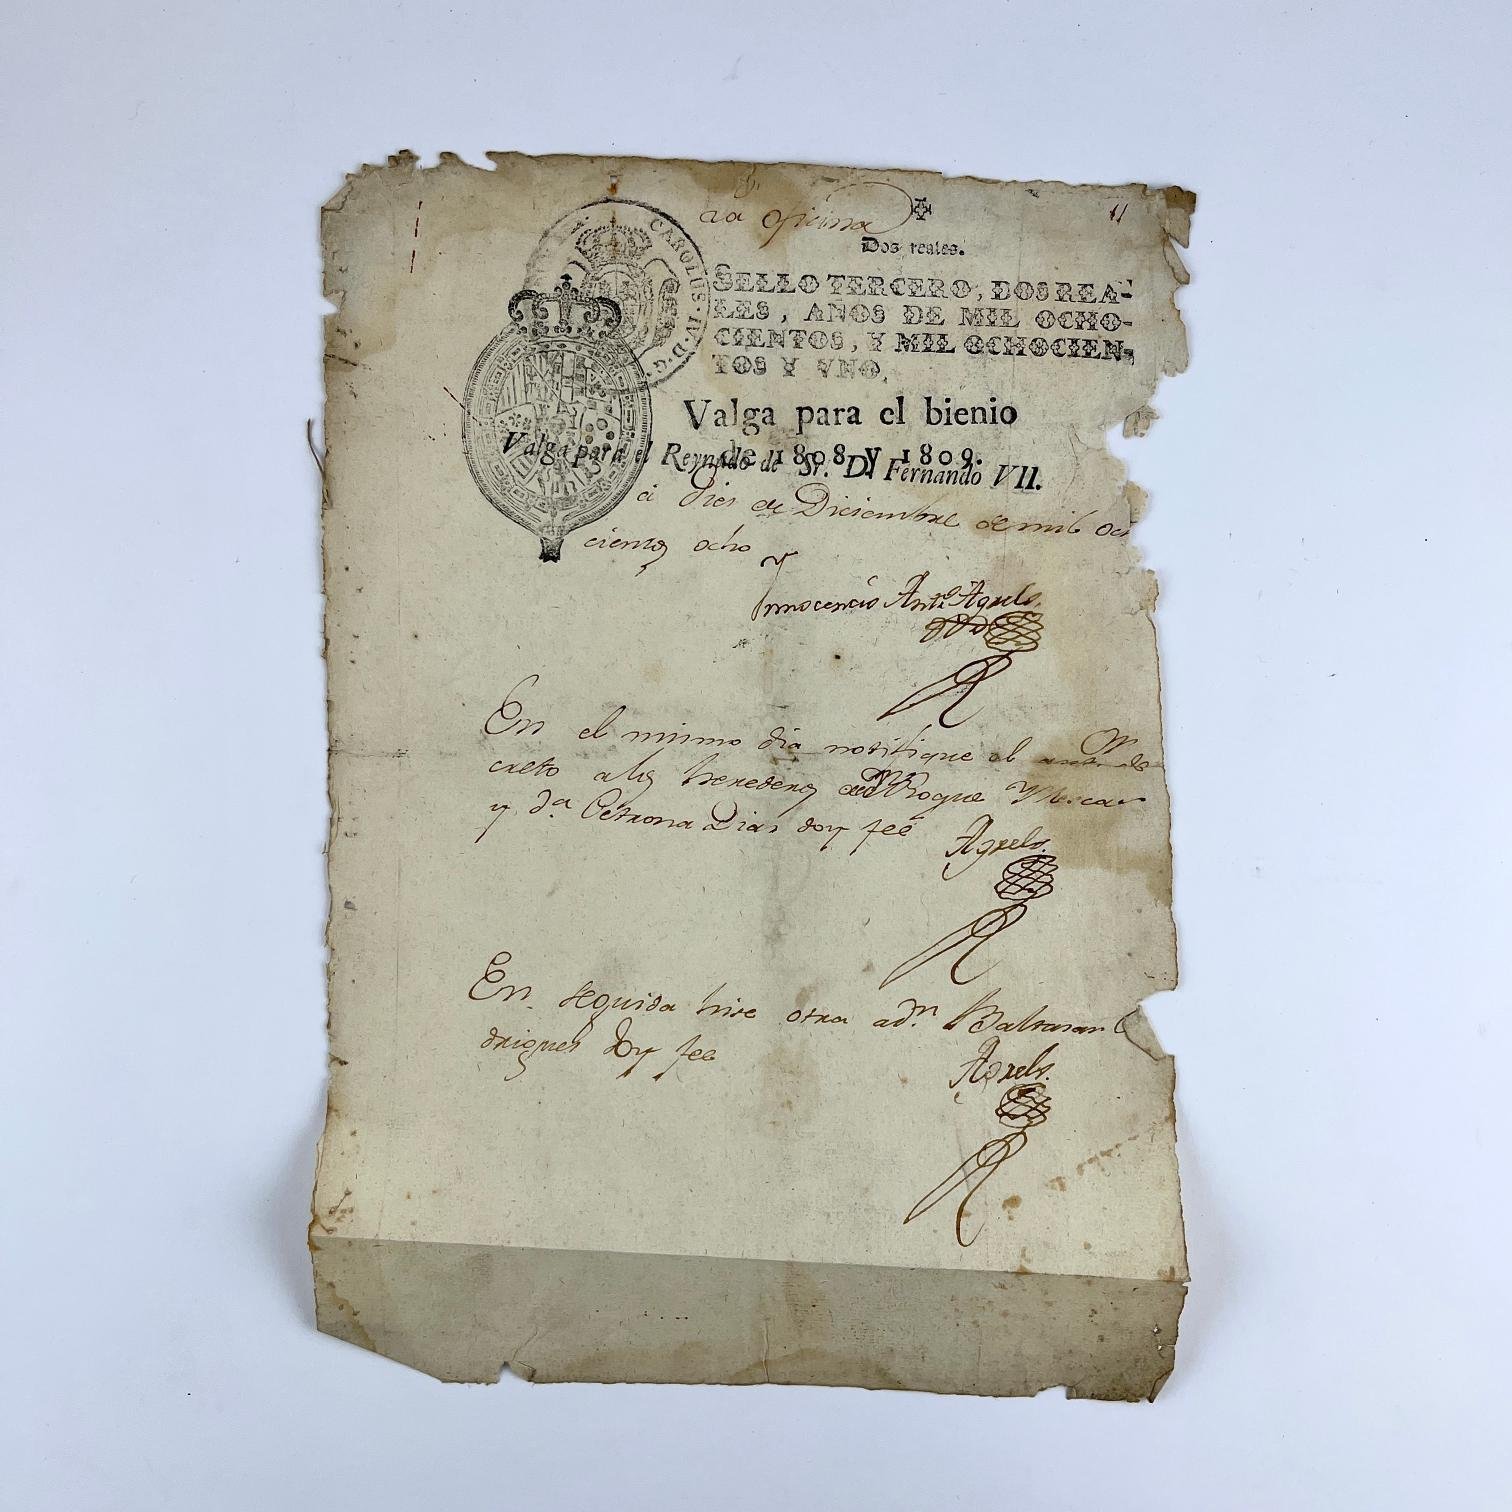 ra oficina
11
Dos reales.
CAROLUS·IV·D·G·
SELLO TERCERO, DOS REA-
LES, AÑOS DE MIL OCHO-
CIENTOS, Y MIL OCHOCIEN-
TOS Y VNO.
Valga para el bienio
de 1808 y 1809.
Valga para el Reynado de Sr. D. Fernando VII.
a dies de Diciembre de mil och
cientos ocho
Ynnocencio Anto. Agrelo.
En el mismo dia notifique el de
creto a los herederos de Dn Roque
y Da Petrona Dias doy feé
Agrelo.
En seguida hise otra a Dn. Baltasar
drigues doy feé
Agrelo.